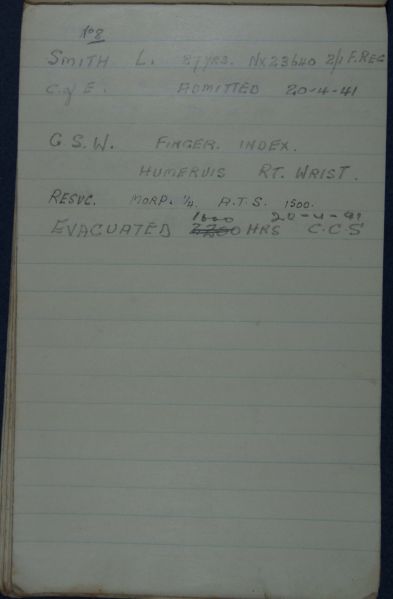 No 8
SMITH L. 27 YRS. NX23640 2/1 F.REG
C of E. ADMITTED 20-4-41
G.S.W. FINGER. INDEX.
HUMERUIS RT. WRIST.
RESVC. MORP. 1/4. A.T.S. 1500.
1600 20-4-41
EVACUATED 2200 HRS C.C.S